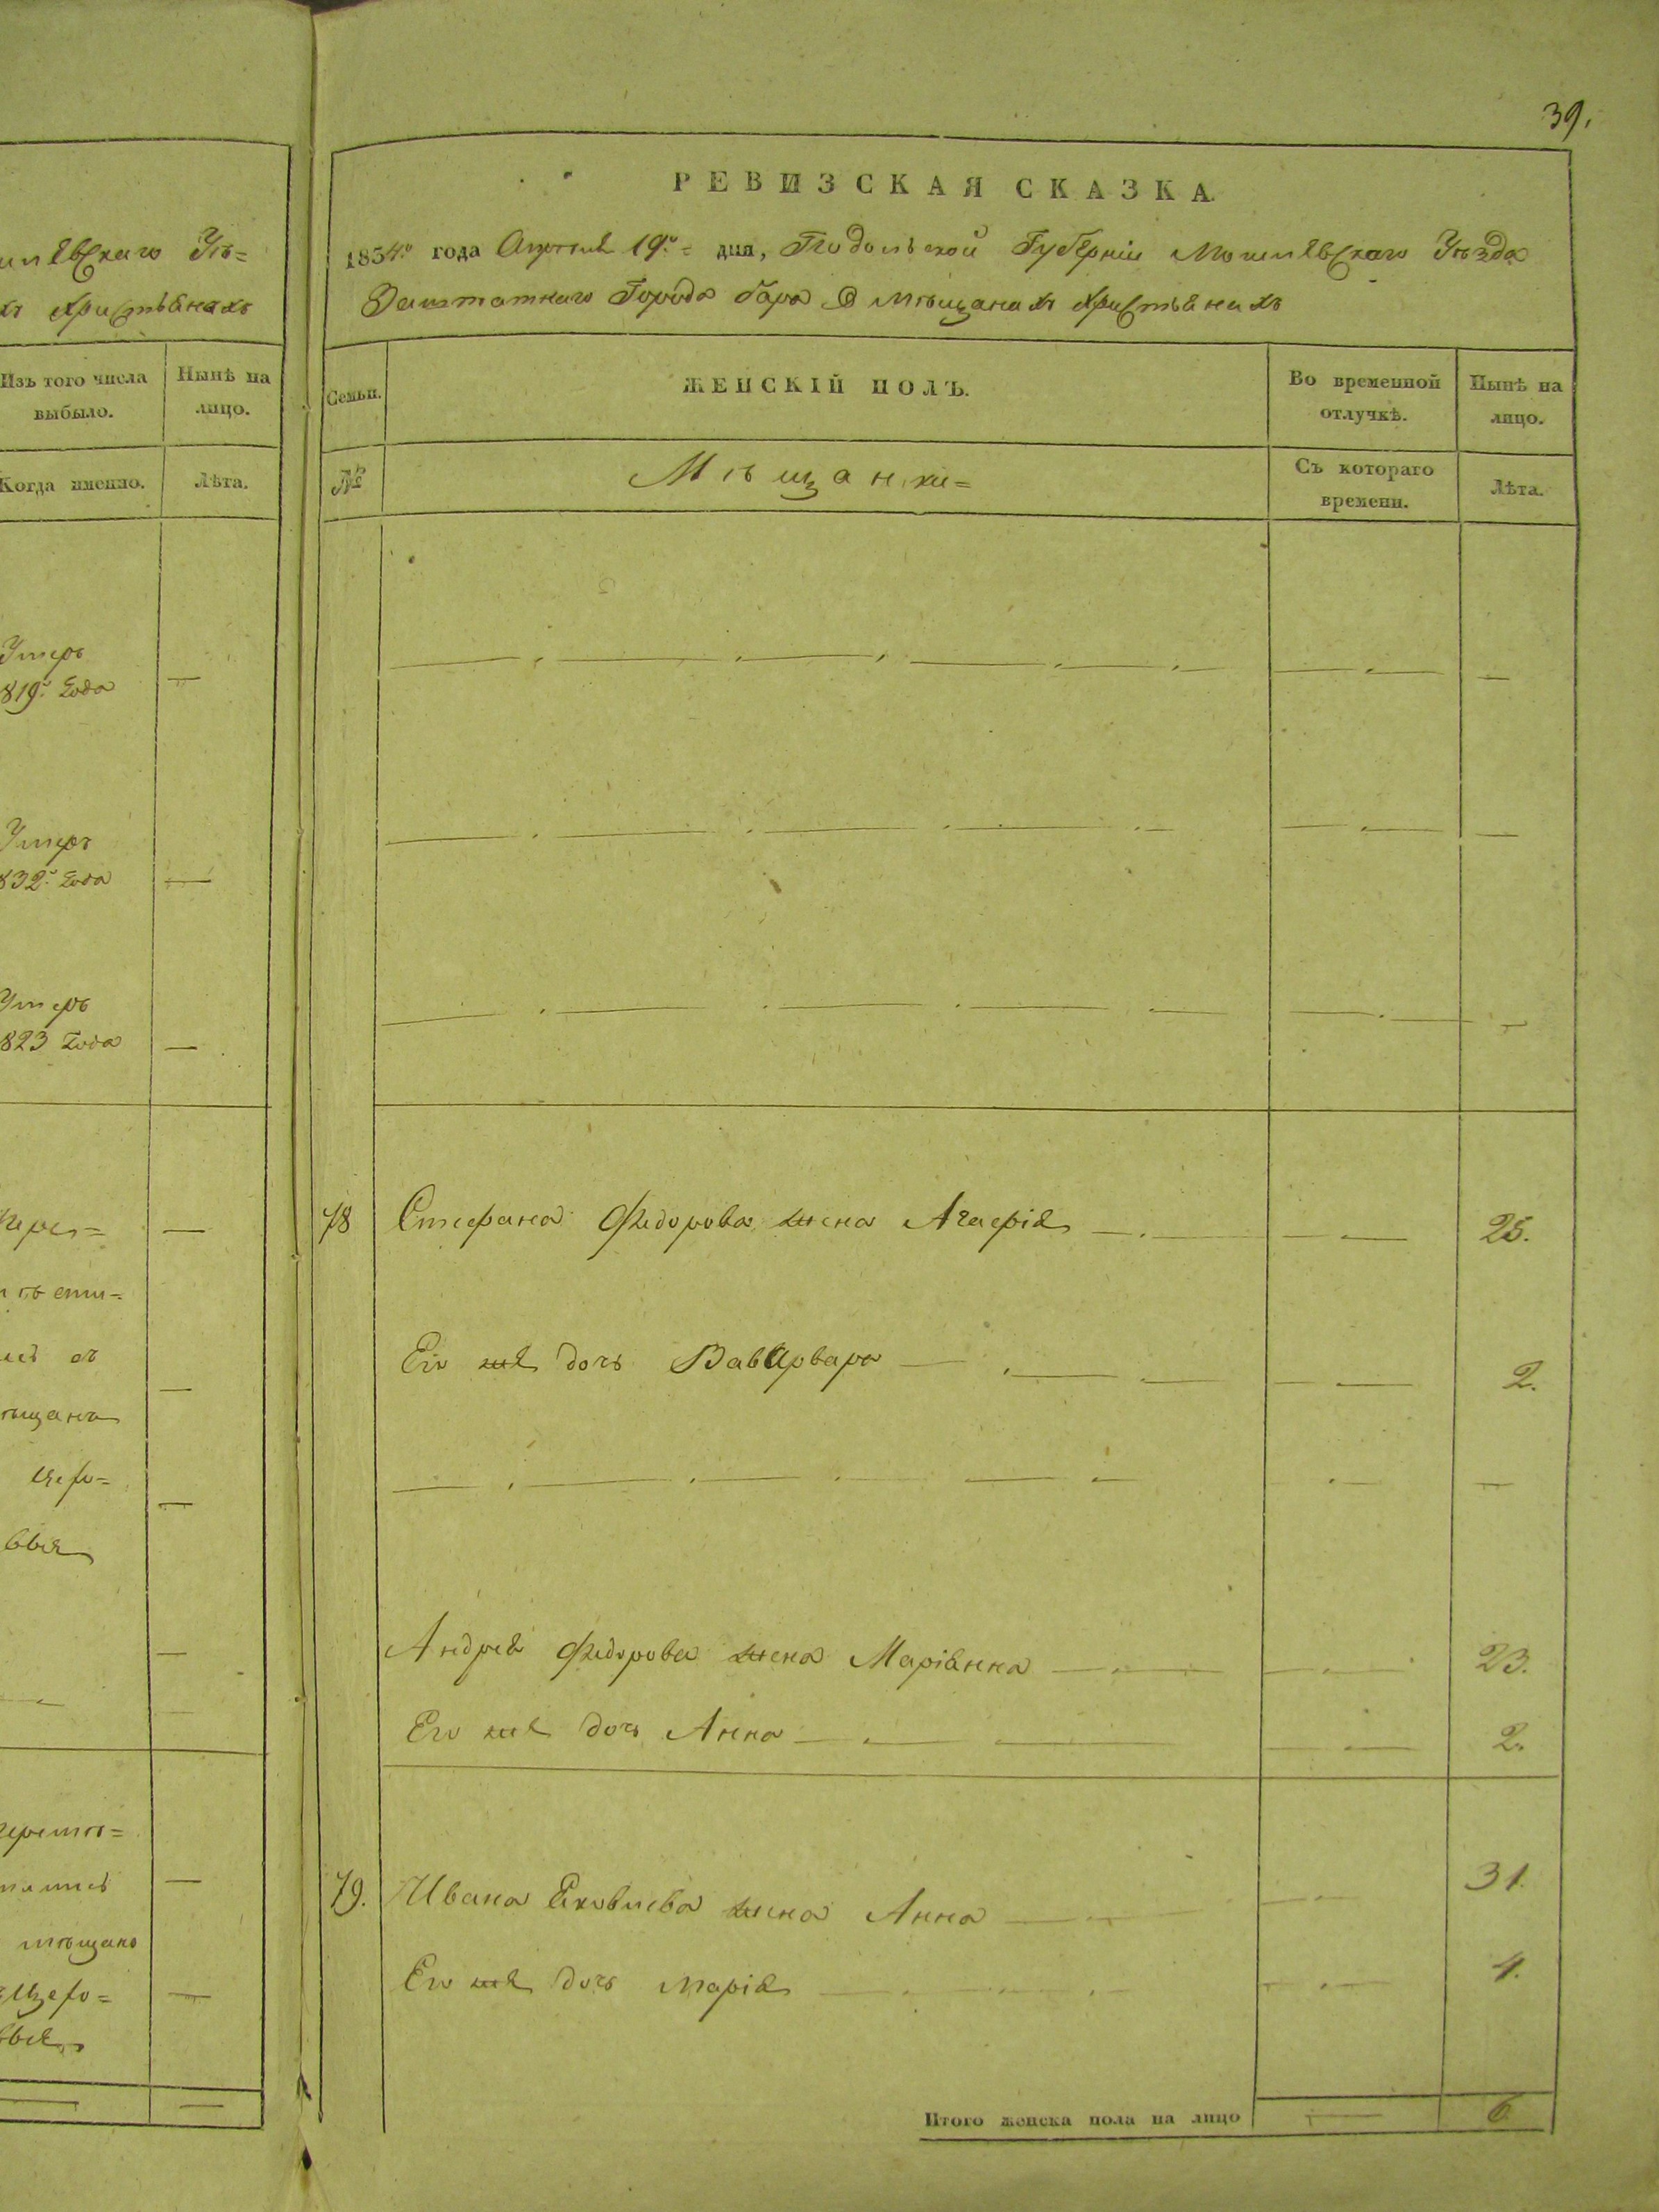 илевскаго Уѣ=
хъ христіянахъ
Изъ того числа
выбыло.
Нынѣ на
лицо.
Когда именно.
Лѣта.
Умеръ
819.º года
Умеръ
832.º года
Умеръ
823 года
перес=
съ
мѣщанъ
мѣщанъ
39.
РЕВИЗСКАЯ СКАЗКА.
1834.º года Апрѣля 19.º = дня, Подольской Губерніи Могилевскаго Уѣзда
Заштатнаго Города бара О мѣщанахъ христіянахъ
Семьи.
ЖЕНСКІЙ ПОЛЪ.
Во временной
отлучкѣ.
Нынѣ на
лицо.
№
Мѣщанки=
Съ котораго
времени.
Лѣта.
78 Стефана Федорова жена Агафія 25.
Его же дочь Ваварвара 2.
Андрея Федорова жена Маріянна 23.
Его же дочь Анна 2.
79. Ивана Яковлева жена Анна 31.
Его же дочь марія 4.
Итого женска пола на лицо 6